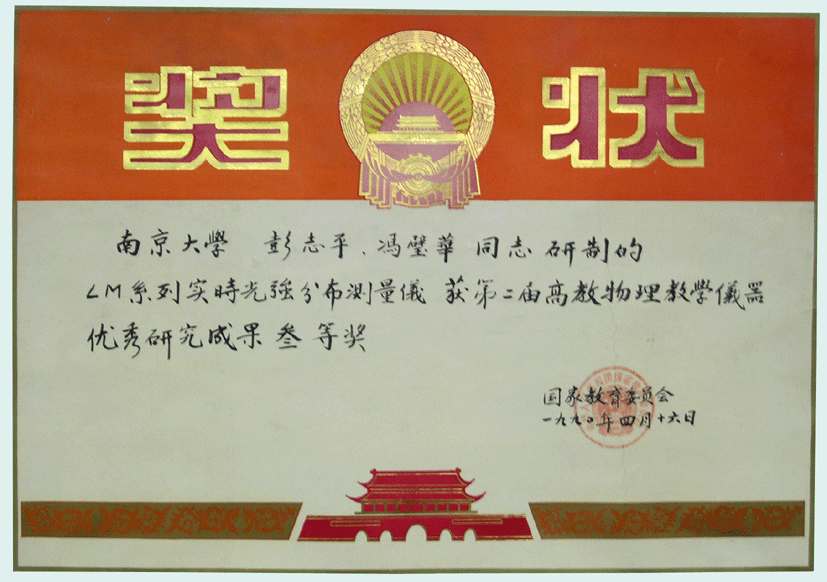 奖状
南京大學 彭志平、馮璧華 同志 研制的
LM系列实時光強分布测量儀 获第二届高教物理教學儀器
优秀研究成果 叁 等奖
国家教育委员会
一九九〇年四月十六日